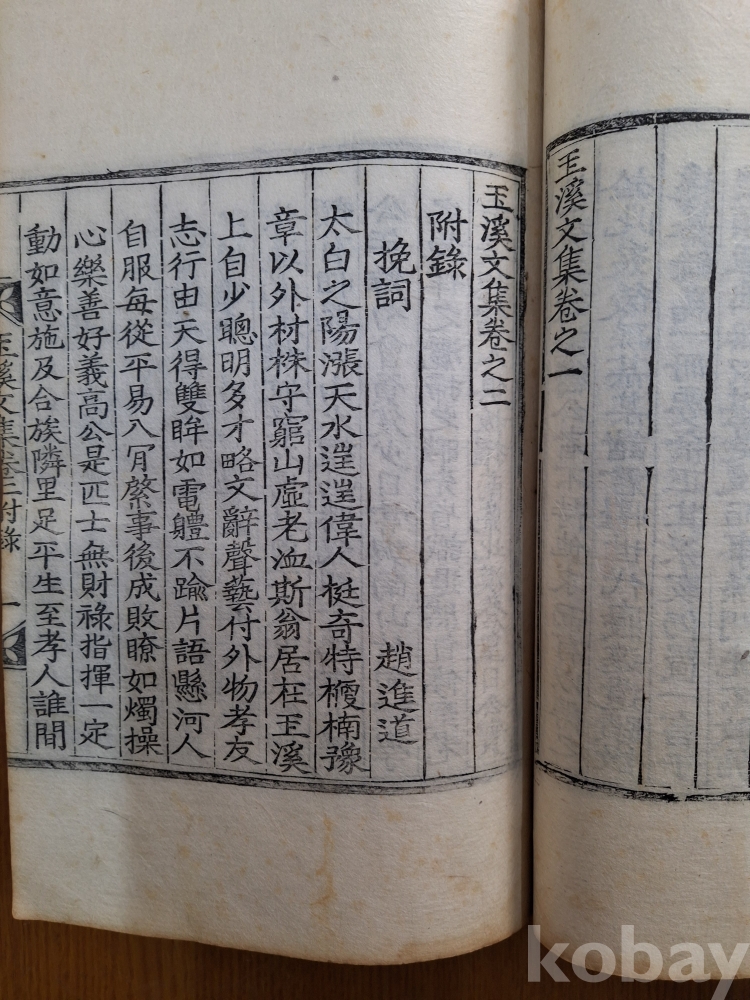 玉溪文集卷之一
玉溪文集卷之二
附錄
挽詞 趙進道
太白之陽漲天水逞逞偉人挺奇特櫰楠豫
章以外材株守窮山虛老洫斯翁居在玉溪
上自少聰明多才略文辭聲藝付外物孝友
志行由天得雙眸如電軆不踰片語懸河人
自服每從平易八肎綮事後成敗瞭如燭操
心樂善好義高公是匹士無財祿指揮一定
動如意施及合族隣里足平生至孝人誰間
玉溪文集卷二附錄 一
kobay